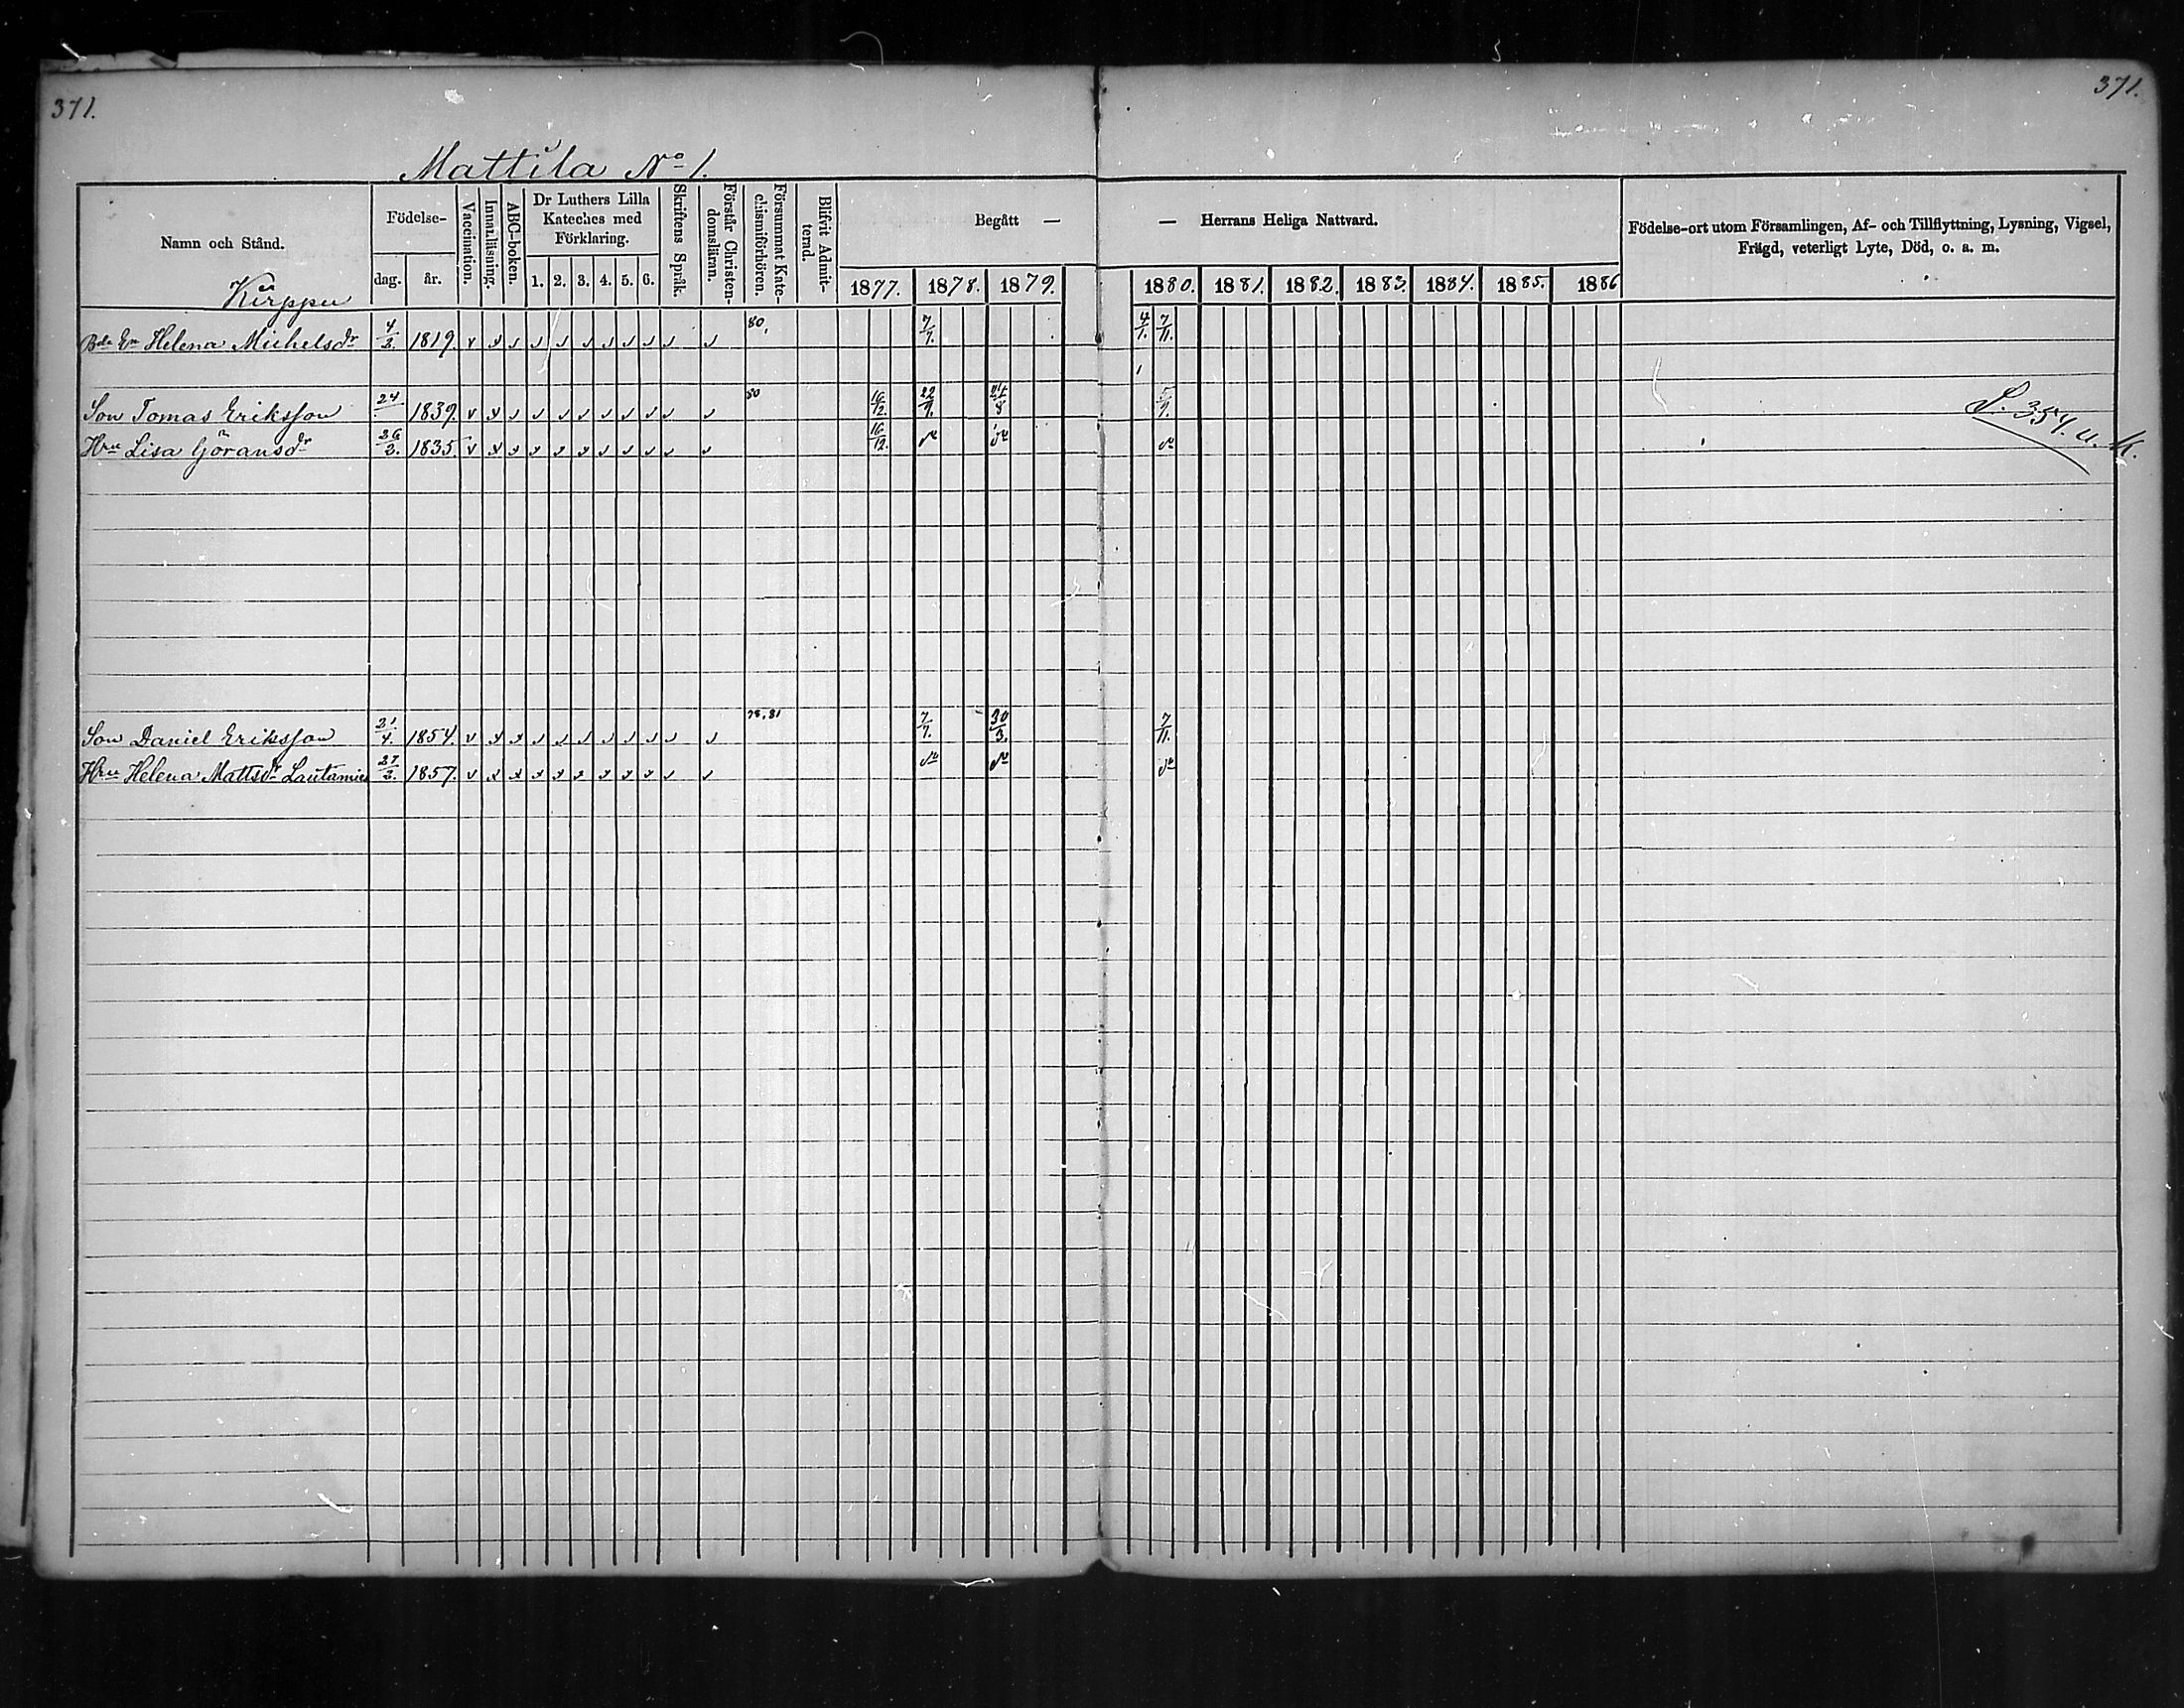 371.
371.
Mattila No 1.
Namn och Stånd.
Födelse-
dag.
år.
Vaccination.
Innanläsning.
ABC-boken.
Dr Luthers Lilla
Kateches med
Förklaring.
1. 2. 3. 4. 5. 6.
Skriftens Språk.
Förstår Christen-
domsläran.
Försummat Kate-
chismiförhören.
Blifvit Admit-
terad.
Begått —
— Herrans Heliga Nattvard.
1877. 1878. 1879. 1880. 1881. 1882. 1883. 1884. 1885. 1886
Födelse-ort utom Församlingen, Af- och Tillflyttning, Lysning, Vigsel,
Frägd, veterligt Lyte, Död, o. a. m.
Kirppu
Bde En Helena Michelsdr 4/2. 1819. 80, 7/7. 4/1. 7/11.
Son Tomas Eriksson 24 1839. 80 16/12. 22/9. 24/8 5/9. S. 354. u. K.
Hru Lisa Göransdr 26/2. 1835 16/12. do do do
Son Daniel Eriksson 21/4. 1854. 78, 81 7/7. 30/3. 7/11.
Hru Helena Mattsdr Lautamies 27/2. 1857. do do do